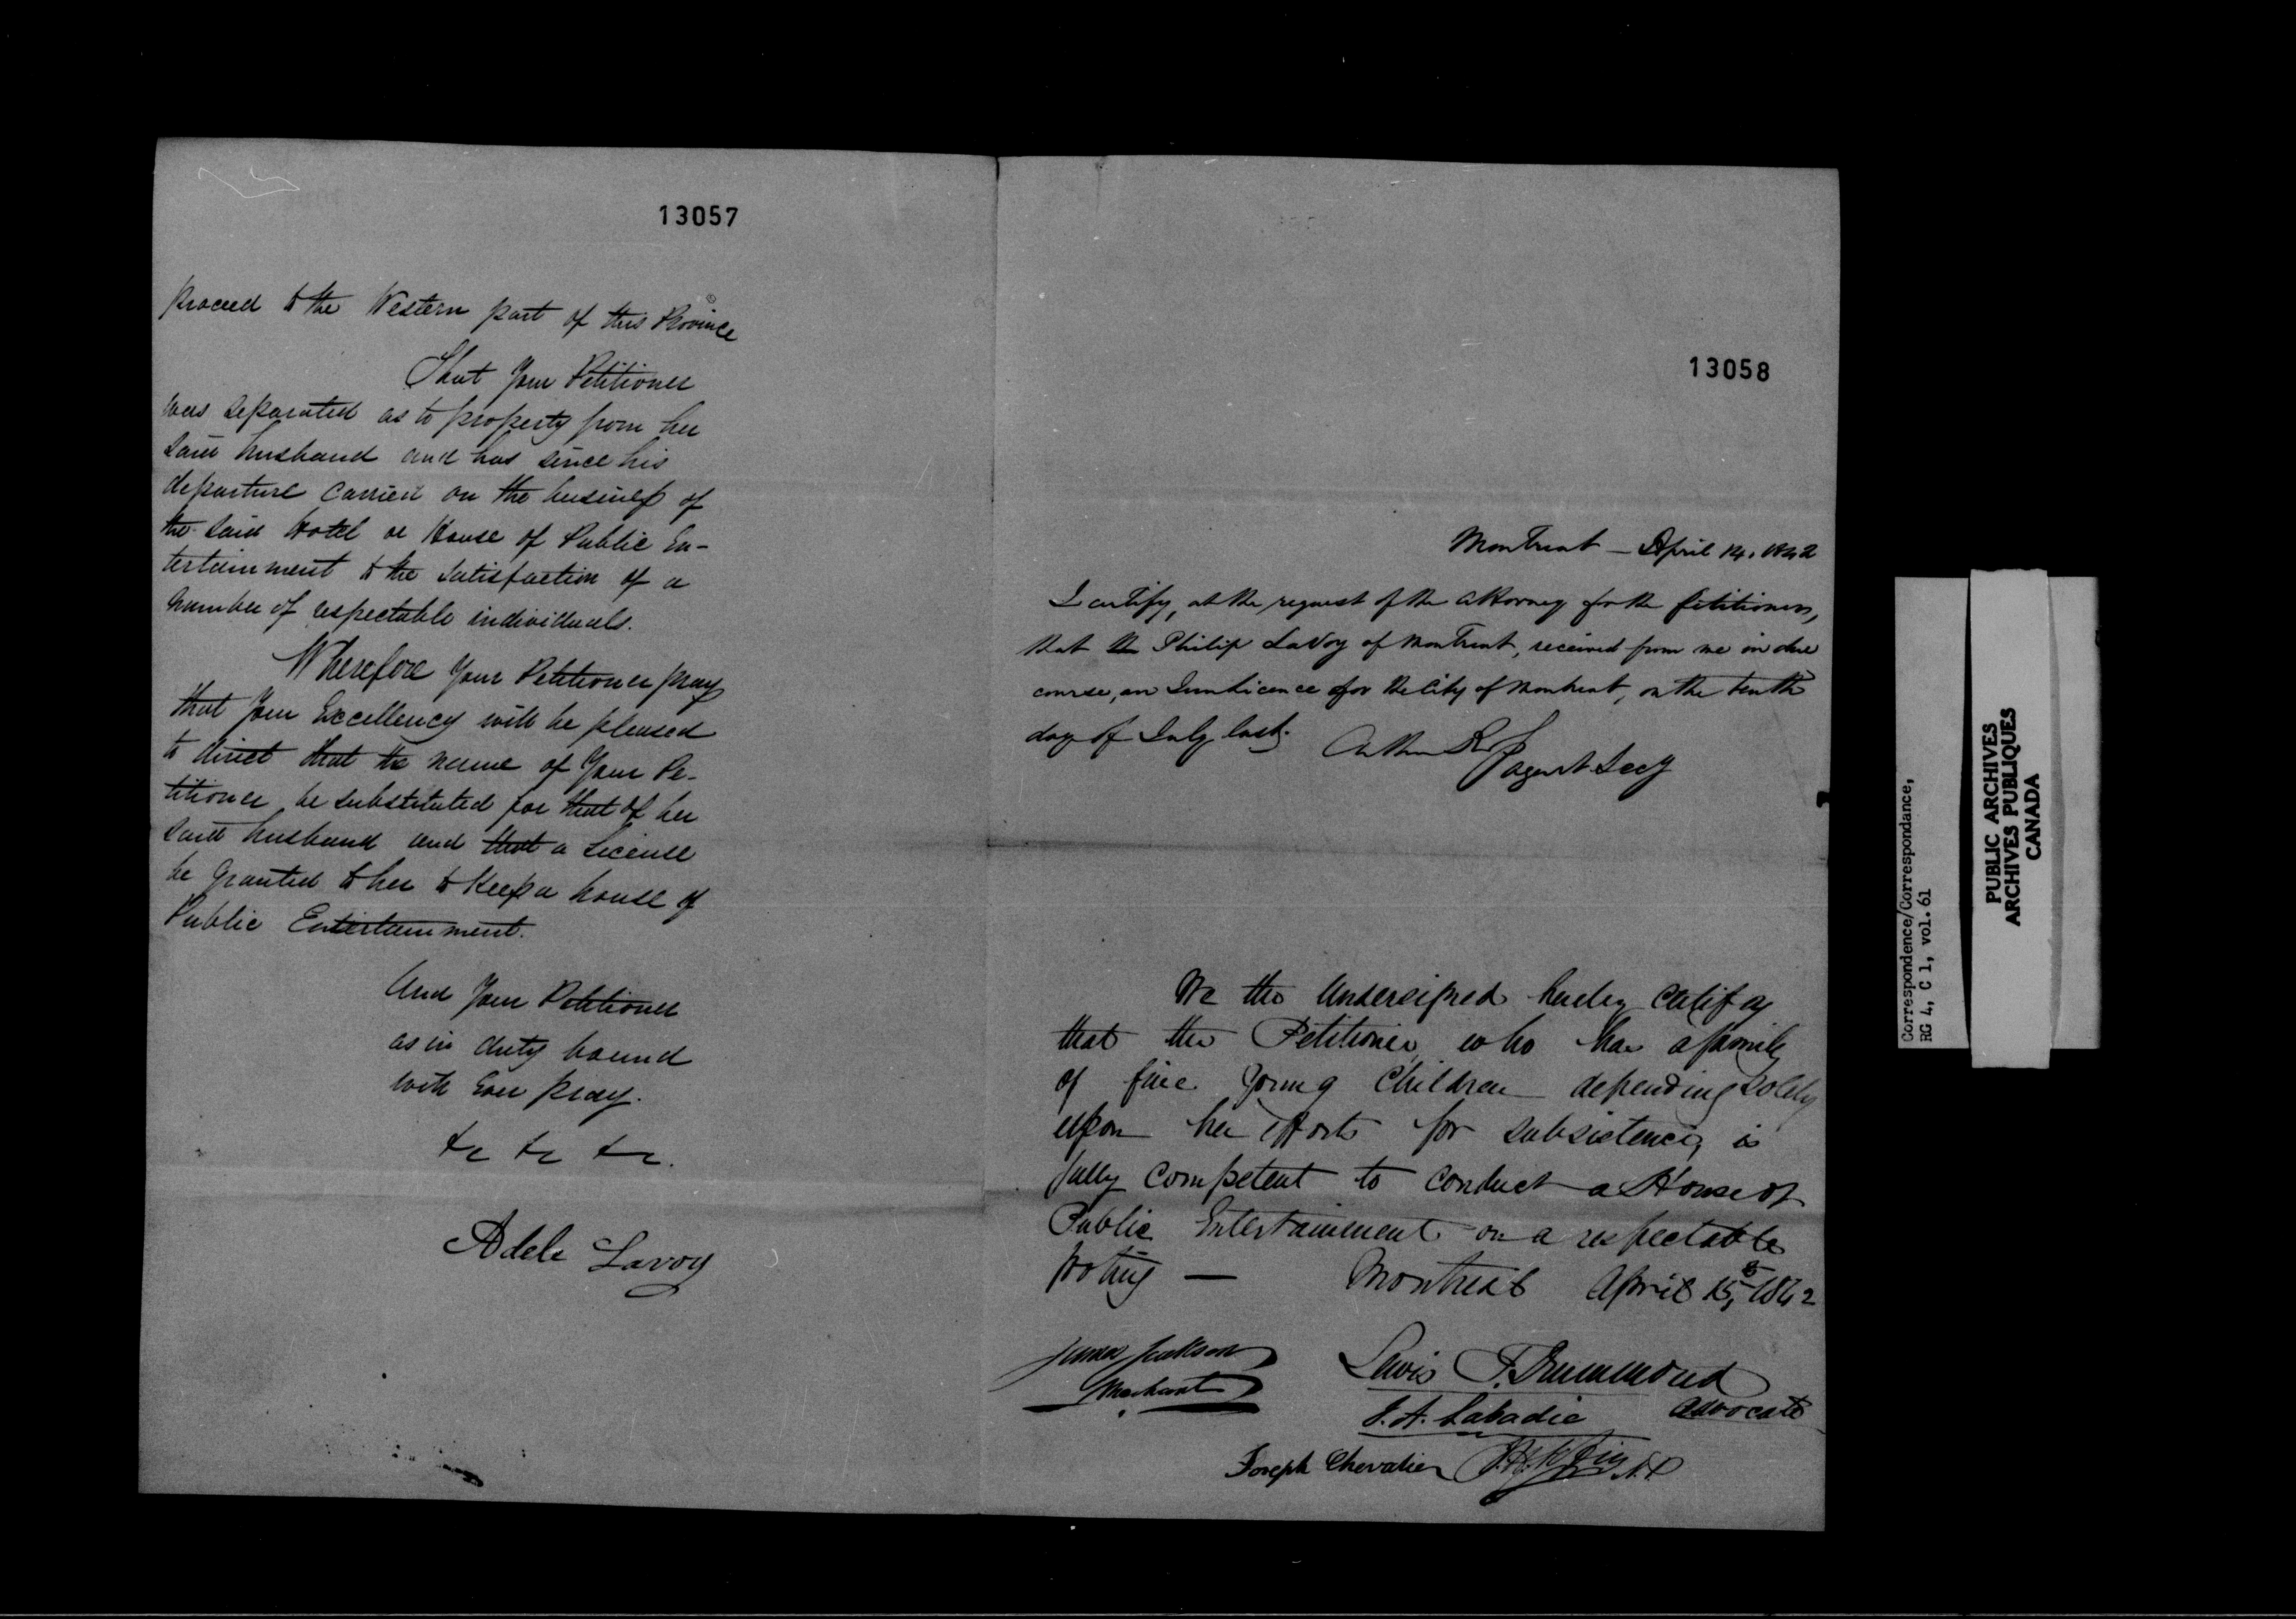 13057
proceed to the Western part of this Province
That Your Petitioner
was separated as to property from her
said husband and has since his
departure carried on the business of
the said Hotel or House of Public En-
tertainment to the satisfaction of a
number of respectable individuals.
Wherefore Your Petitioner pray
that Your Excellency will be pleased
to direct that the name of Your Pe-
titioner be substituted for that of her
said husband and that a License
be granted to her to Keep a house of
Public Entertainment.
And Your Petitioner
as in duty bound
will Ever pray.
&c &c &c.
Adele Lavoy
13058
Montreal – April 14. 1842
I certify, at the request of the Attorney for the petitioner,
that Philip LaVoy of Montreal, received from me in due
course, an Inn Licence for the City of Montreal, on the tenth
day of July last.
We the Undersigned hereby Certify
that the Petitioner, who has a family
of five young Children depending Solely
upon her efforts for subsistence, is
fully Competent to Conduct a House of
Public Entertainment on a respectable
footing — Montreal April 15, 1842
James Jackson
Merchant
Lewis T. Drummond
Advocate
J. A. Labadie
Joseph Chevalier
N.P
Correspondence/Correspondance,
RG 4, C 1, vol. 61
PUBLIC ARCHIVES
ARCHIVES PUBLIQUES
CANADA